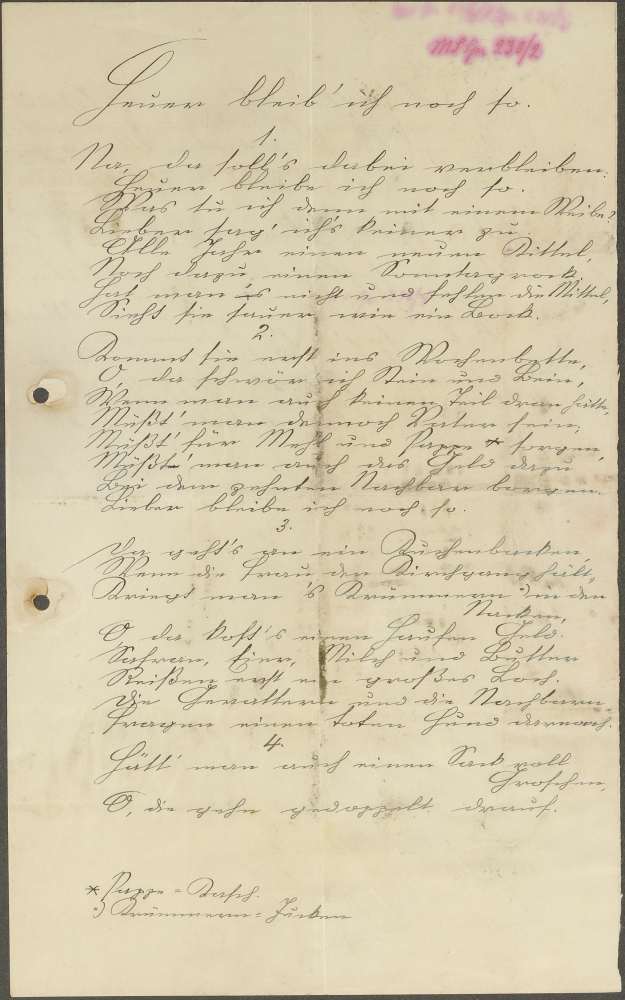 MSgr. 238/2
Heuer bleib' ich noch so.
1.
Na, da soll's dabei verbleiben.
Heuer bleibe ich noch so.
Was tu ich denn mit einem Weibe?
Lieber sag' ich's keiner zu.
Alle Jahr einen neuen Kittel,
Noch dazu einen Sonntagrock.
Hat man's nicht und fehlen die Mittel,
Sieht sie sauer wie ein Bock.
2.
Kommt sie erst ins Wochenbette,
O, da schwör ich Stein und Bein,
Wenn man auch keinen Teil dran hätte,
Müßt' man dennoch Vater sein;
Müßt' für Mehl und Pappe * sorgen,
Müßt' man auch das Geld dazu
Bei dem zehnten Nachbar borgen.
Lieber bleibe ich noch so.
3.
Da geht's an ein Kuchenbacken,
Wenn die Frau den Kirchgang hält,
Kriegt man 's Krümmern °) in den
Nacken,
O, da kost's einen Haufen Geld.
Safran, Eier, Milch und Butter
Reißen erst ein großes Loch.
Die Gevattern und die Nachbarn
Fragen einen toten Hund darnach.
4.
Hätt' man auch einen Sack voll
Groschen,
O, die gehn gedoppelt drauf.
* Pappe = Kasch.
°) Krümmern = Jucken